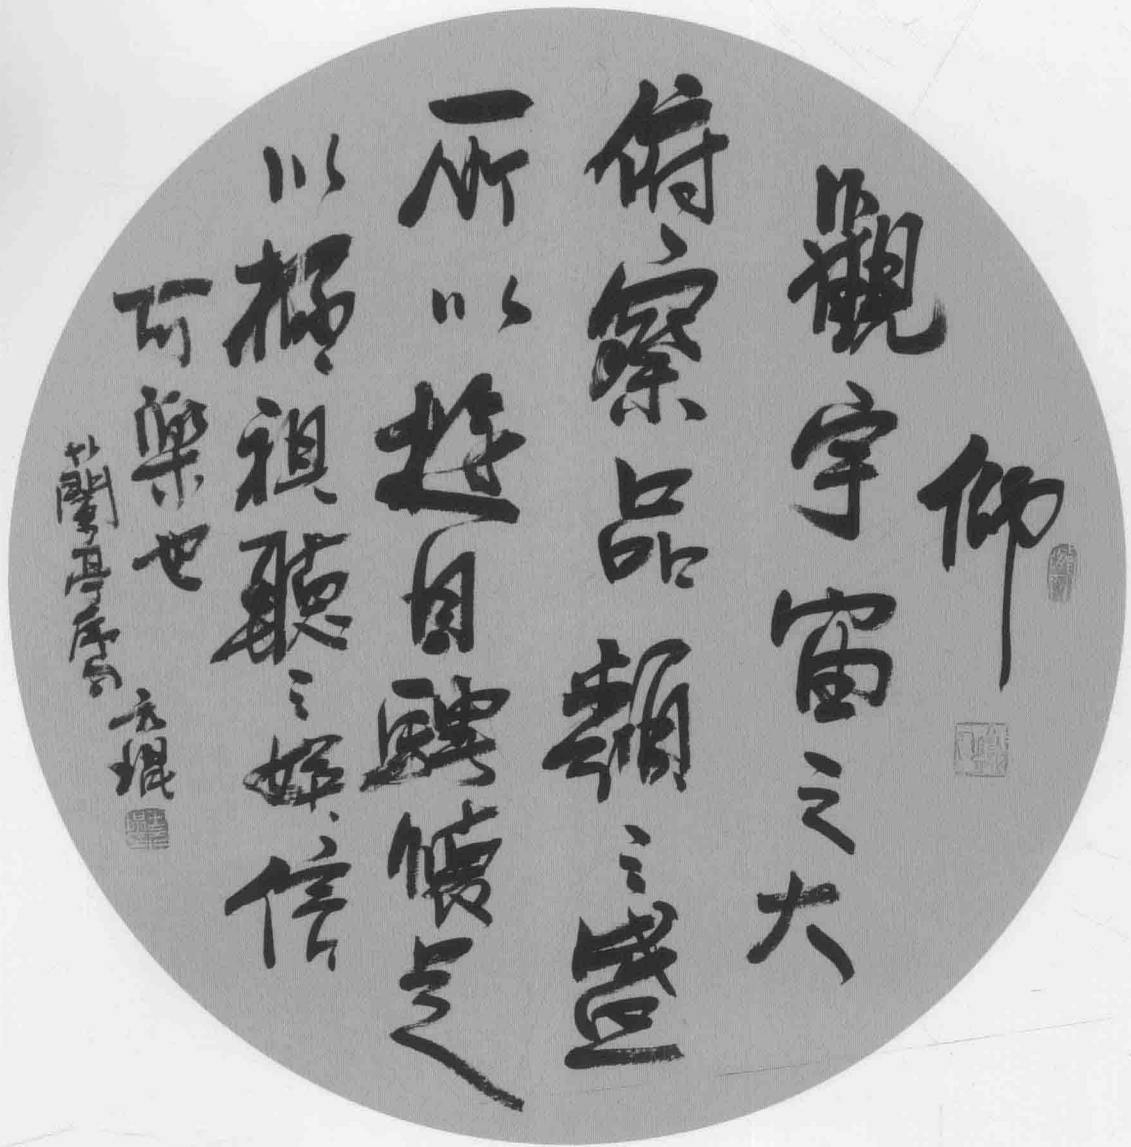 仰
觀宇宙之大
俯察品類之盛
所以遊目騁懷足
以極視聽之娛信
可樂也
蘭亭序句
元琨